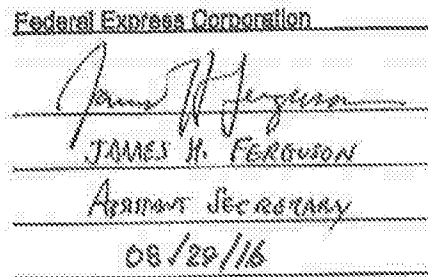 Federal Express Corporation
James H. Ferguson
JAMES H. FERGUSON
ASSISTANT SECRETARY
08/29/16